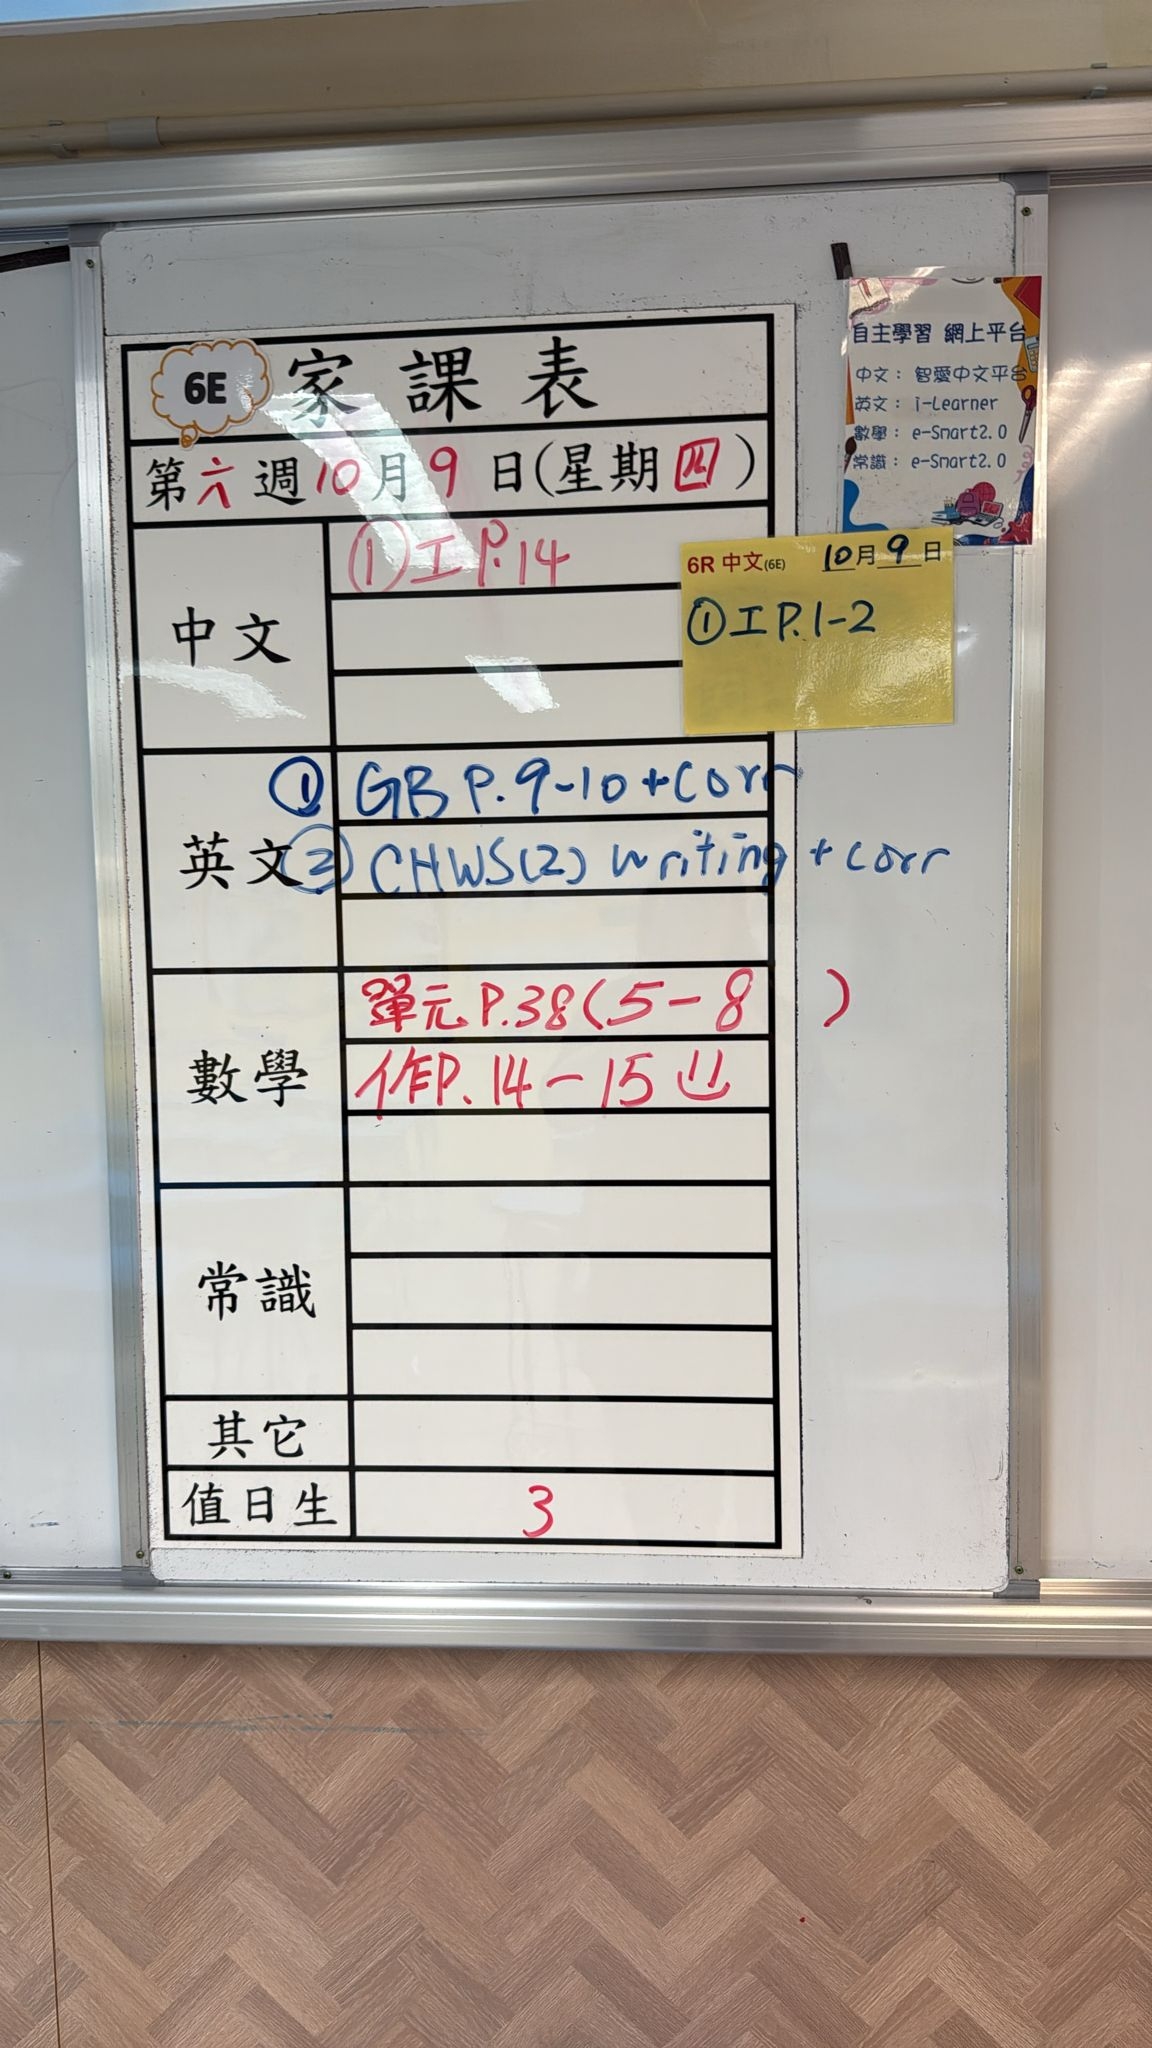 6E 家課表
第六週10月9日(星期四)
中文
①工P.14
英文
①GB P.9-10+Corr
②CHWS(2) writing + corr
數學
單元P.38(5-8 )
作P.14-15
常識
其它
值日生 3
自主學習 網上平台
中文： 智愛中文平台
英文： i-Learner
數學： e-Smart2.0
常識： e-Smart2.0
6R 中文(6E) 10月9日
①工P.1-2